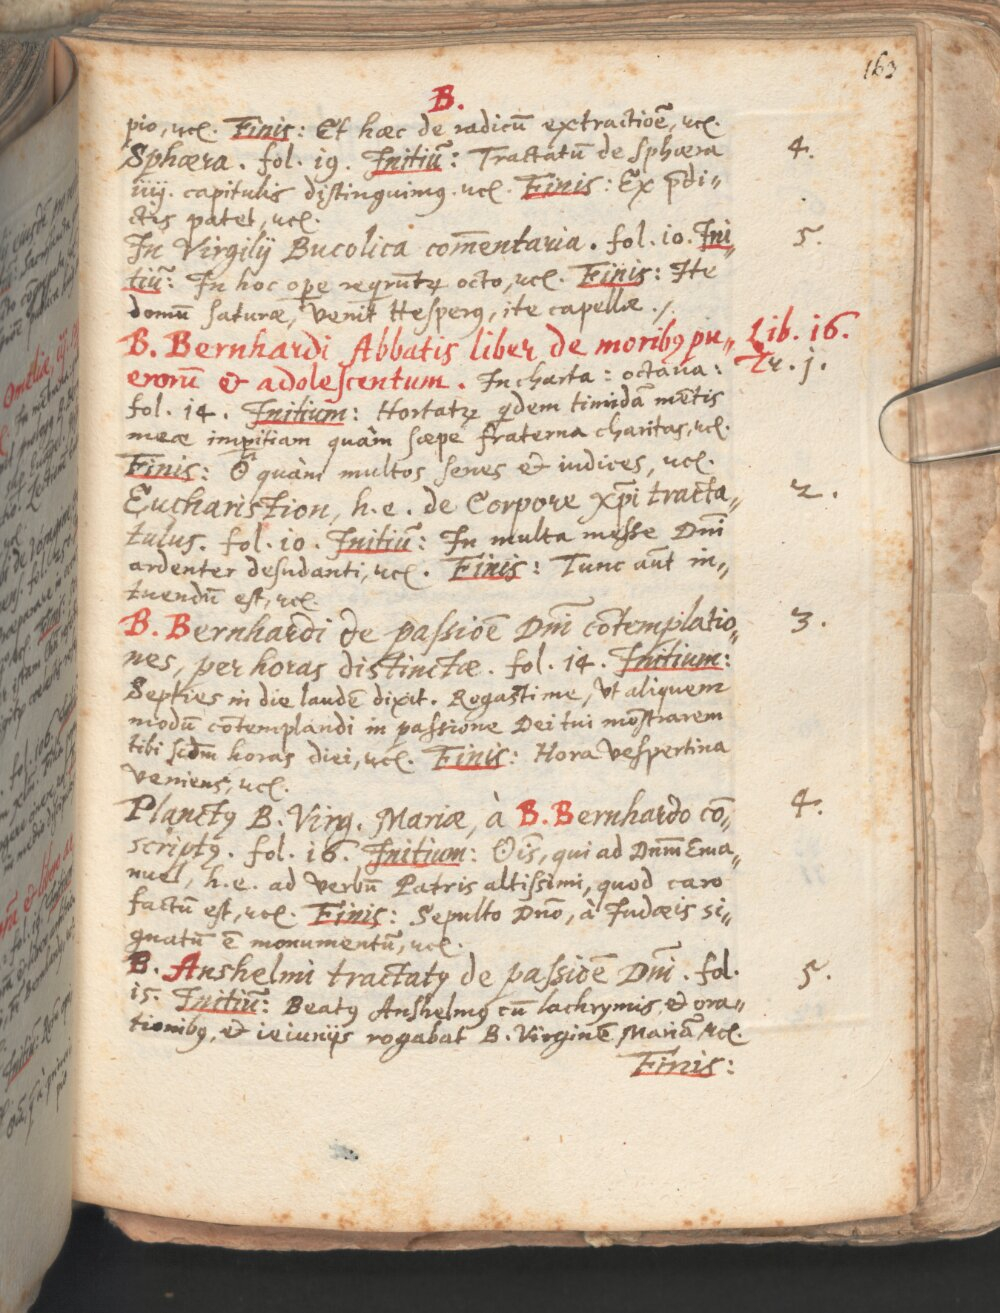 163
B.
pio, ꝛcꝭ. Finis: Et hæc de radicū extractiōe, ꝛcꝭ.
Sphæra. fol. 19. Initiū: Tractatū de sphæra 4.
iiij. capitulis distinguimꝰ. ꝛcꝭ. Finis: Ex p̄di„
ctis patet, ꝛcꝭ.
In Virgilij Bucolica com̄entaria. fol. 10. Ini„ 5.
tiū: In hoc oꝑe reqrūtꝛ octo, ꝛcꝭ. Finis: Ite
domū saturæ, venit Hesperꝰ, ite capellæ./
B. Bernhardi Abbatis liber de moribꝰ pu„ Lib. 16.
erorū & adolescentum. In charta: octaua: Tr. j.
fol. 14. Initium: Hortatꝛ qdem timidā mētis
meæ imꝑitiam quàm sæpe fraterna charitas, ꝛcꝭ.
Finis: Ô quàm multos senes & iudices, ꝛcꝭ.
Eucharistion, h.e. de Corpore xp̄i tracta„ 2.
tulus. fol. 10. Initiū: In multa messe Dn̄i
ardenter desudanti, ꝛcꝭ. Finis: Tunc aūt in„
tuendū est, ꝛcꝭ.
B. Bernhardi de passiōe Dn̄i cōtemplatio„ 3.
nes, per horas distinctæ. fol. 14. Initium:
Septies in die laudē dixit. Rogasti me, vt aliquem
modū cōtemplandi in passione Dei tui mōstrarem
tibi scdm̄ horas diei, ꝛcꝭ. Finis: Hora vespertina
veniens, ꝛcꝭ.
Planctꝰ B. Virg. Mariæ, à B. Bernhardo cō„ 4.
scriptꝰ. fol. 16. Initium: Ōis, qui ad Dnm̄ Ema„
nuel, h.e. ad verbū Patris altissimi, quod caro
factū est, ꝛcꝭ. Finis: Sepulto Dn̄o, à Judæis si„
gnatū ē monumentū, ꝛcꝭ.
B. Anshelmi tractatꝰ de passiōe Dn̄i. fol. 5.
15. Initiū: Beatꝰ Anshelmꝰ cū lachrymis, & ora„
tionibꝰ, & ieiunijs rogabat B. Virginē Mariā, ꝛcꝭ.
Finis: